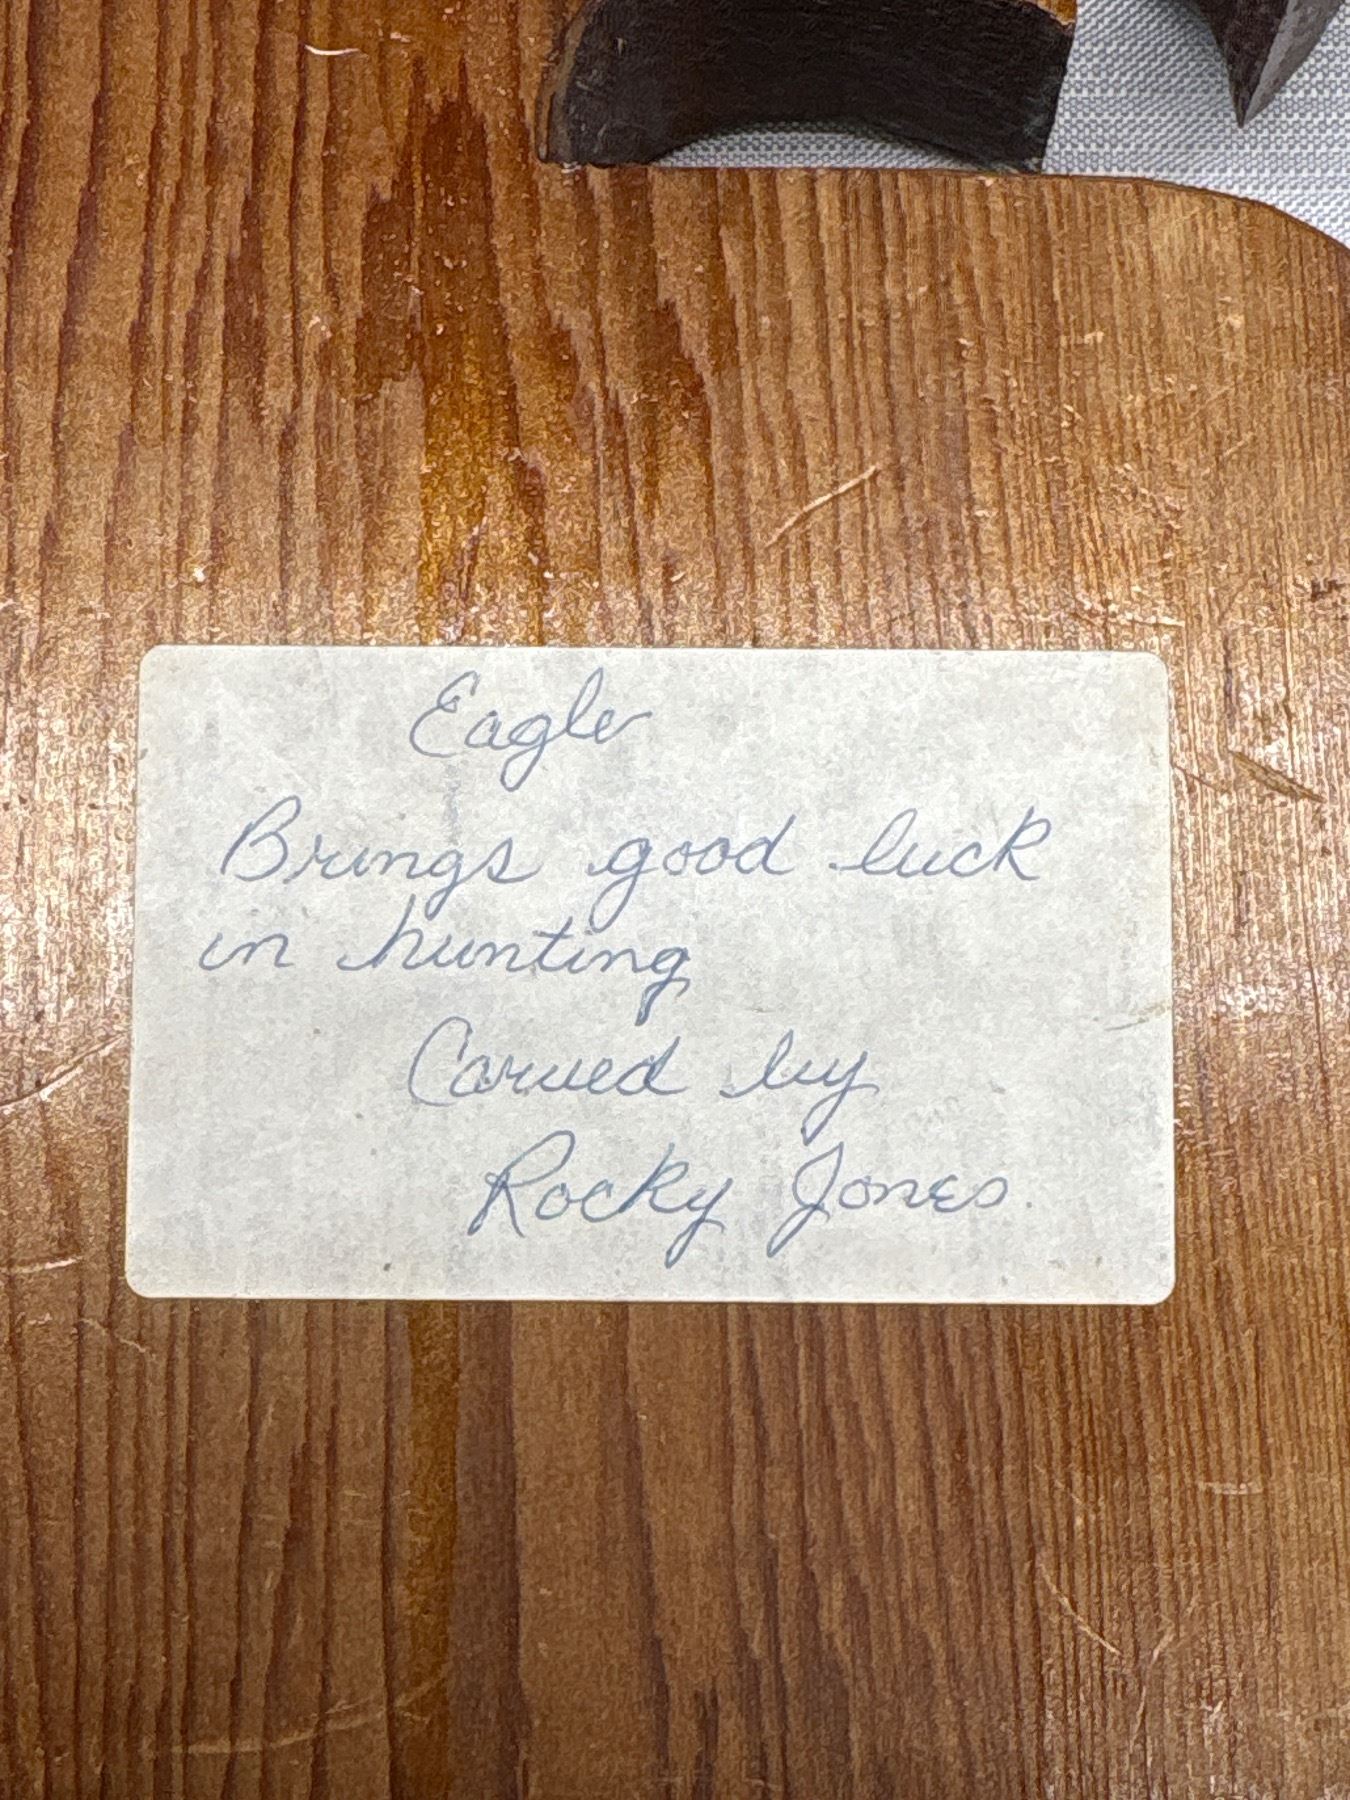 Eagle
Brings good luck
in hunting
Carved by
Rocky Jones.